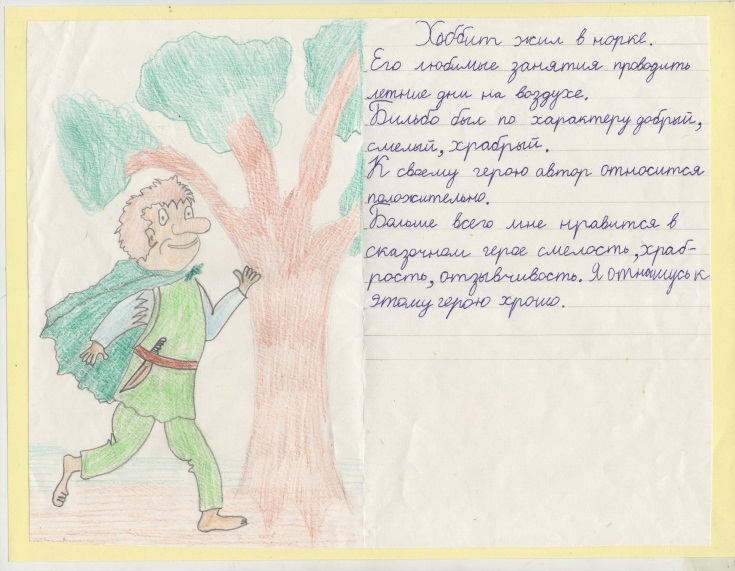 Хоббит жил в норке.
Его любимые занятия проводить
летние дни на воздухе.
Бильбо был по характеру добрый,
смелый, храбрый.
К своему герою автор относится
положительно.
Больше всего мне нравится в
сказочном герое смелость, храб-
рость, отзывчивость. Я отношусь к
этому герою хрошо.